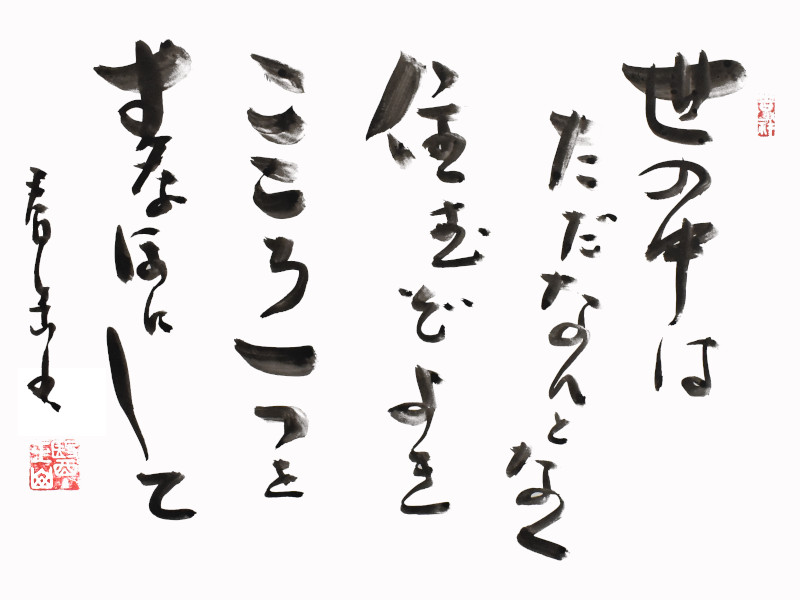 世の中は
ただなんとなく
住むぞよき
こころ一つを
すなほにして